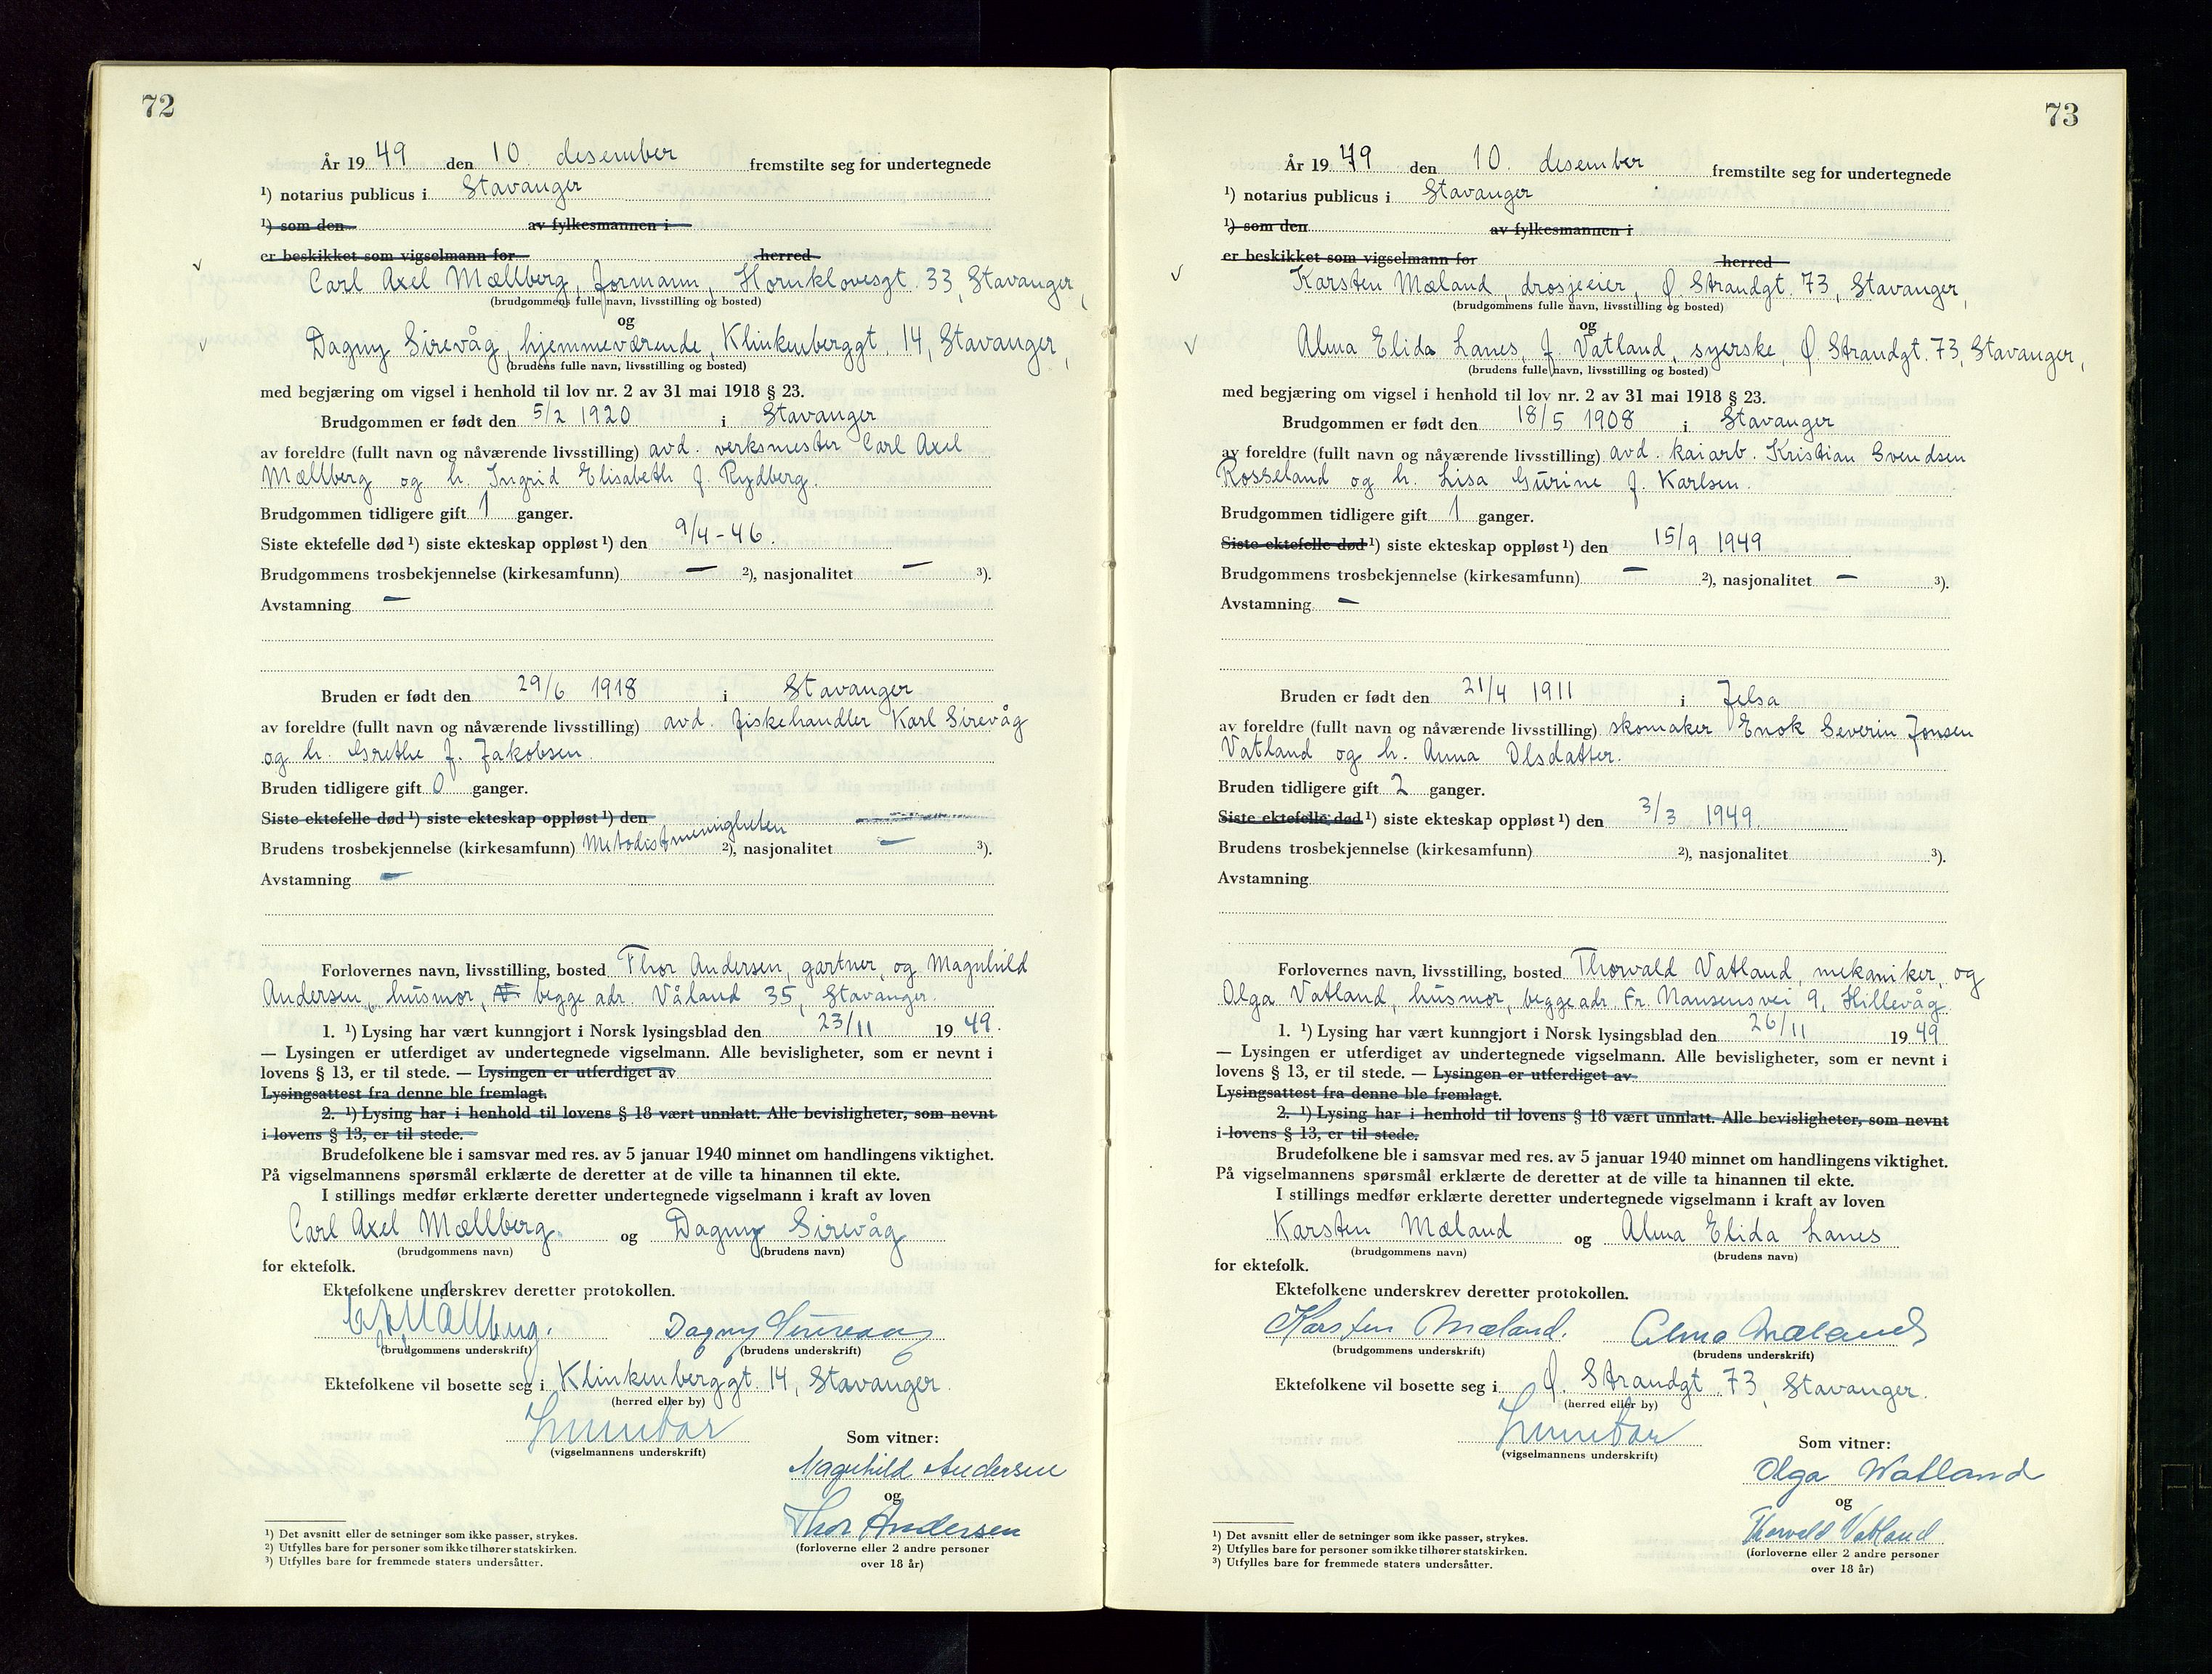 72
År 19 49 den 10. desember fremstilte seg for undertegnede
¹) notarius publicus i Stavanger
¹) som den av fylkesmannen i
er beskikket som vigselmann for herred
Carl Axel Mællberg, formann, Hornklovesgt. 33, Stavanger,
(brudgommens fulle navn, livsstilling og bosted)
og
Dagny Sirevåg, hjemmeværende, Klinkenberggt. 14, Stavanger,
(brudens fulle navn, livsstilling og bosted)
med begjæring om vigsel i henhold til lov nr. 2 av 31 mai 1918 § 23.
Brudgommen er født den 5/2 1920 i Stavanger
av foreldre (fullt navn og nåværende livsstilling) avd. verksmester Carl Axel
Mællberg og h. Ingrid Elisabeth f. Rydberg.
Brudgommen tidligere gift 1 ganger.
Siste ektefelle død ¹) siste ekteskap oppløst ¹) den 9/4-46.
Brudgommens trosbekjennelse (kirkesamfunn) — ²), nasjonalitet — ³).
Avstamning —
Bruden er født den 29/6 1918 i Stavanger
av foreldre (fullt navn og nåværende livsstilling) avd. fiskehandler Karl Sirevåg
og h. Grethe f. Jakobsen.
Bruden tidligere gift 0 ganger.
Siste ektefelle død ¹) siste ekteskap oppløst ¹) den
Brudens trosbekjennelse (kirkesamfunn) Metodistmenigheten ²), nasjonalitet — ³).
Avstamning —
Forlovernes navn, livsstilling, bosted Thor Andersen, gartner, og Magnhild
Andersen, husmor, begge adr. Våland 35, Stavanger.
1. ¹) Lysing har vært kunngjort i Norsk lysingsblad den 23/11 19 49.
— Lysingen er utferdiget av undertegnede vigselmann. Alle bevisligheter, som er nevnt i
lovens § 13, er til stede. — Lysingen er utferdiget av
Lysingsattest fra denne ble fremlagt.
2. ¹) Lysing har i henhold til lovens § 18 vært unnlatt. Alle bevisligheter, som nevnt
i lovens § 13, er til stede.
Brudefolkene ble i samsvar med res. av 5 januar 1940 minnet om handlingens viktighet.
På vigselmannens spørsmål erklærte de deretter at de ville ta hinannen til ekte.
I stillings medfør erklærte deretter undertegnede vigselmann i kraft av loven
Carl Axel Mællberg. og Dagny Sirevåg
(brudgommens navn) (brudens navn)
for ektefolk.
Ektefolkene underskrev deretter protokollen.
Mællberg. Dagny Sirevaag
(brudgommens underskrift) (brudens underskrift)
Ektefolkene vil bosette seg i Klinkenberggt. 14, Stavanger.
(herred eller by)
(vigselmannens underskrift)
Som vitner:
Magnhild Andersen
og
Thor Andersen
(forloverne eller 2 andre personer
over 18 år)
¹) Det avsnitt eller de setninger som ikke passer, strykes.
²) Utfylles bare for personer som ikke tilhører statskirken.
³) Utfylles bare for fremmede staters undersåtter.
73
År 19 49 den 10. desember fremstilte seg for undertegnede
¹) notarius publicus i Stavanger
¹) som den av fylkesmannen i
er beskikket som vigselmann for herred
Karsten Mæland, drosjeeier, Ø. Strandgt. 73, Stavanger,
(brudgommens fulle navn, livsstilling og bosted)
og
Alma Elida Lanes, f. Vatland, syerske, Ø. Strandgt. 73, Stavanger,
(brudens fulle navn, livsstilling og bosted)
med begjæring om vigsel i henhold til lov nr. 2 av 31 mai 1918 § 23.
Brudgommen er født den 18/5 1908 i Stavanger
av foreldre (fullt navn og nåværende livsstilling) avd. kaiarb. Kristian Svendsen
Rosseland og h. Lisa Gurine f. Karlsen.
Brudgommen tidligere gift 1 ganger.
Siste ektefelle død ¹) siste ekteskap oppløst ¹) den 15/9 1949
Brudgommens trosbekjennelse (kirkesamfunn) — ²), nasjonalitet — ³).
Avstamning —
Bruden er født den 21/4 1911 i Jelsa
av foreldre (fullt navn og nåværende livsstilling) skomaker Enok Severin Jonsen
Vatland og h. Anna Olsdatter.
Bruden tidligere gift 2 ganger.
Siste ektefelle død ¹) siste ekteskap oppløst ¹) den 3/3 1949.
Brudens trosbekjennelse (kirkesamfunn) ²), nasjonalitet ³).
Avstamning
Forlovernes navn, livsstilling, bosted Thorvald Vatland, mekaniker, og
Olga Vatland, husmor, begge adr. Fr. Nansensvei 9, Hillevåg
1. ¹) Lysing har vært kunngjort i Norsk lysingsblad den 26/11 19 49
— Lysingen er utferdiget av undertegnede vigselmann. Alle bevisligheter, som er nevnt i
lovens § 13, er til stede. — Lysingen er utferdiget av
Lysingsattest fra denne ble fremlagt.
2. ¹) Lysing har i henhold til lovens § 18 vært unnlatt. Alle bevisligheter, som nevnt
i lovens § 13, er til stede.
Brudefolkene ble i samsvar med res. av 5 januar 1940 minnet om handlingens viktighet.
På vigselmannens spørsmål erklærte de deretter at de ville ta hinannen til ekte.
I stillings medfør erklærte deretter undertegnede vigselmann i kraft av loven
Karsten Mæland og Alma Elida Lanes
(brudgommens navn) (brudens navn)
for ektefolk.
Ektefolkene underskrev deretter protokollen.
Karsten Mæland. Alma Mæland
(brudgommens underskrift) (brudens underskrift)
Ektefolkene vil bosette seg i Ø. Strandgt. 73, Stavanger.
(herred eller by)
(vigselmannens underskrift)
Som vitner:
Olga Watland
og
Thorvald Vatland
(forloverne eller 2 andre personer
over 18 år)
¹) Det avsnitt eller de setninger som ikke passer, strykes.
²) Utfylles bare for personer som ikke tilhører statskirken.
³) Utfylles bare for fremmede staters undersåtter.